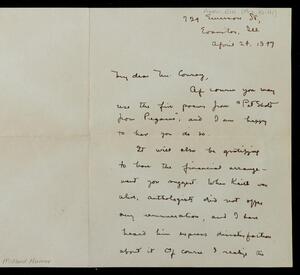 724 Emerson St,
Evanston, Ill
April 24, 1947
My dear Mr. Conroy,
Of course you may
use the five poems from "Pot Shots
from Pegasus", and I am happy
to have you do so.
It will also be gratifying
to have the financial arrange-
ment you suggest. When Keith was
alive, anthologists did not offer
any remuneration, and I have
heard him express dissatisfaction
about it. Of course I realize the